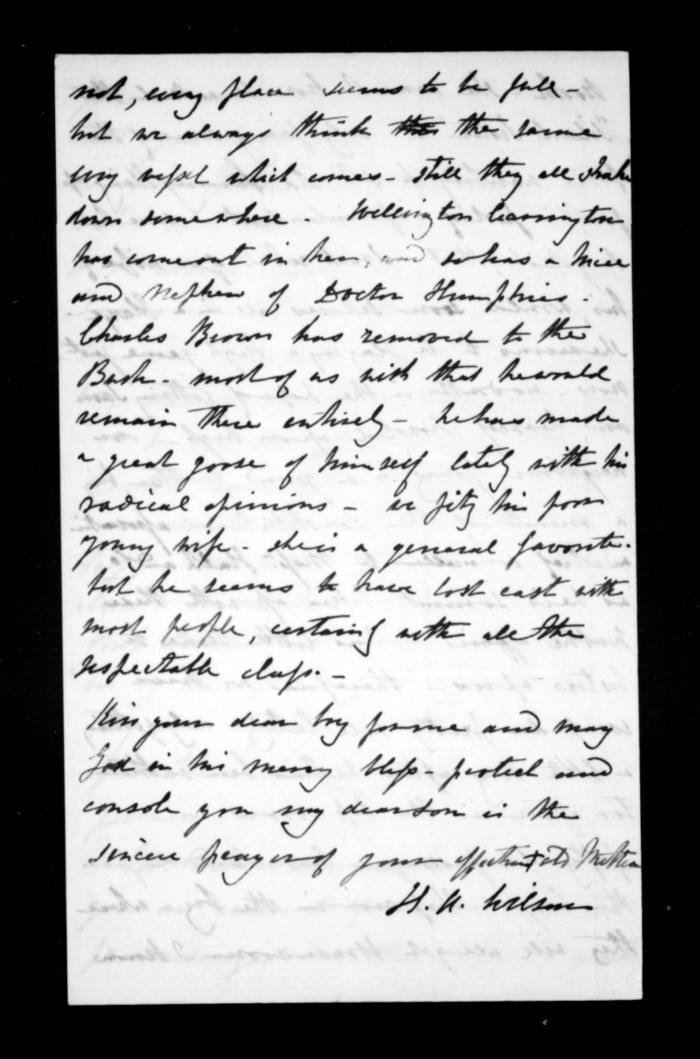 not, every place seems to be full -
but we always think this the same
every vessel which comes - still they all shake
down somewhere. Wellington Carrington
has come out in her, and so has a niece
and Nephew of Doctor Humphries -
Charles Brown has removed to the
Bush - most of us wish that he would
remain there entirely - he has made
a great goose of himself lately with his
radical opinions - we pity his poor
young wife - she is a general favorite -
but he seems to have lost cast with
most people, certainly with all the
respectable class. -
Kiss your dear boy for me and may
God in his mercy bless - protect and
console you my dear son is the
sincere prayer of your affectionate old Mother
H. A. Wilson